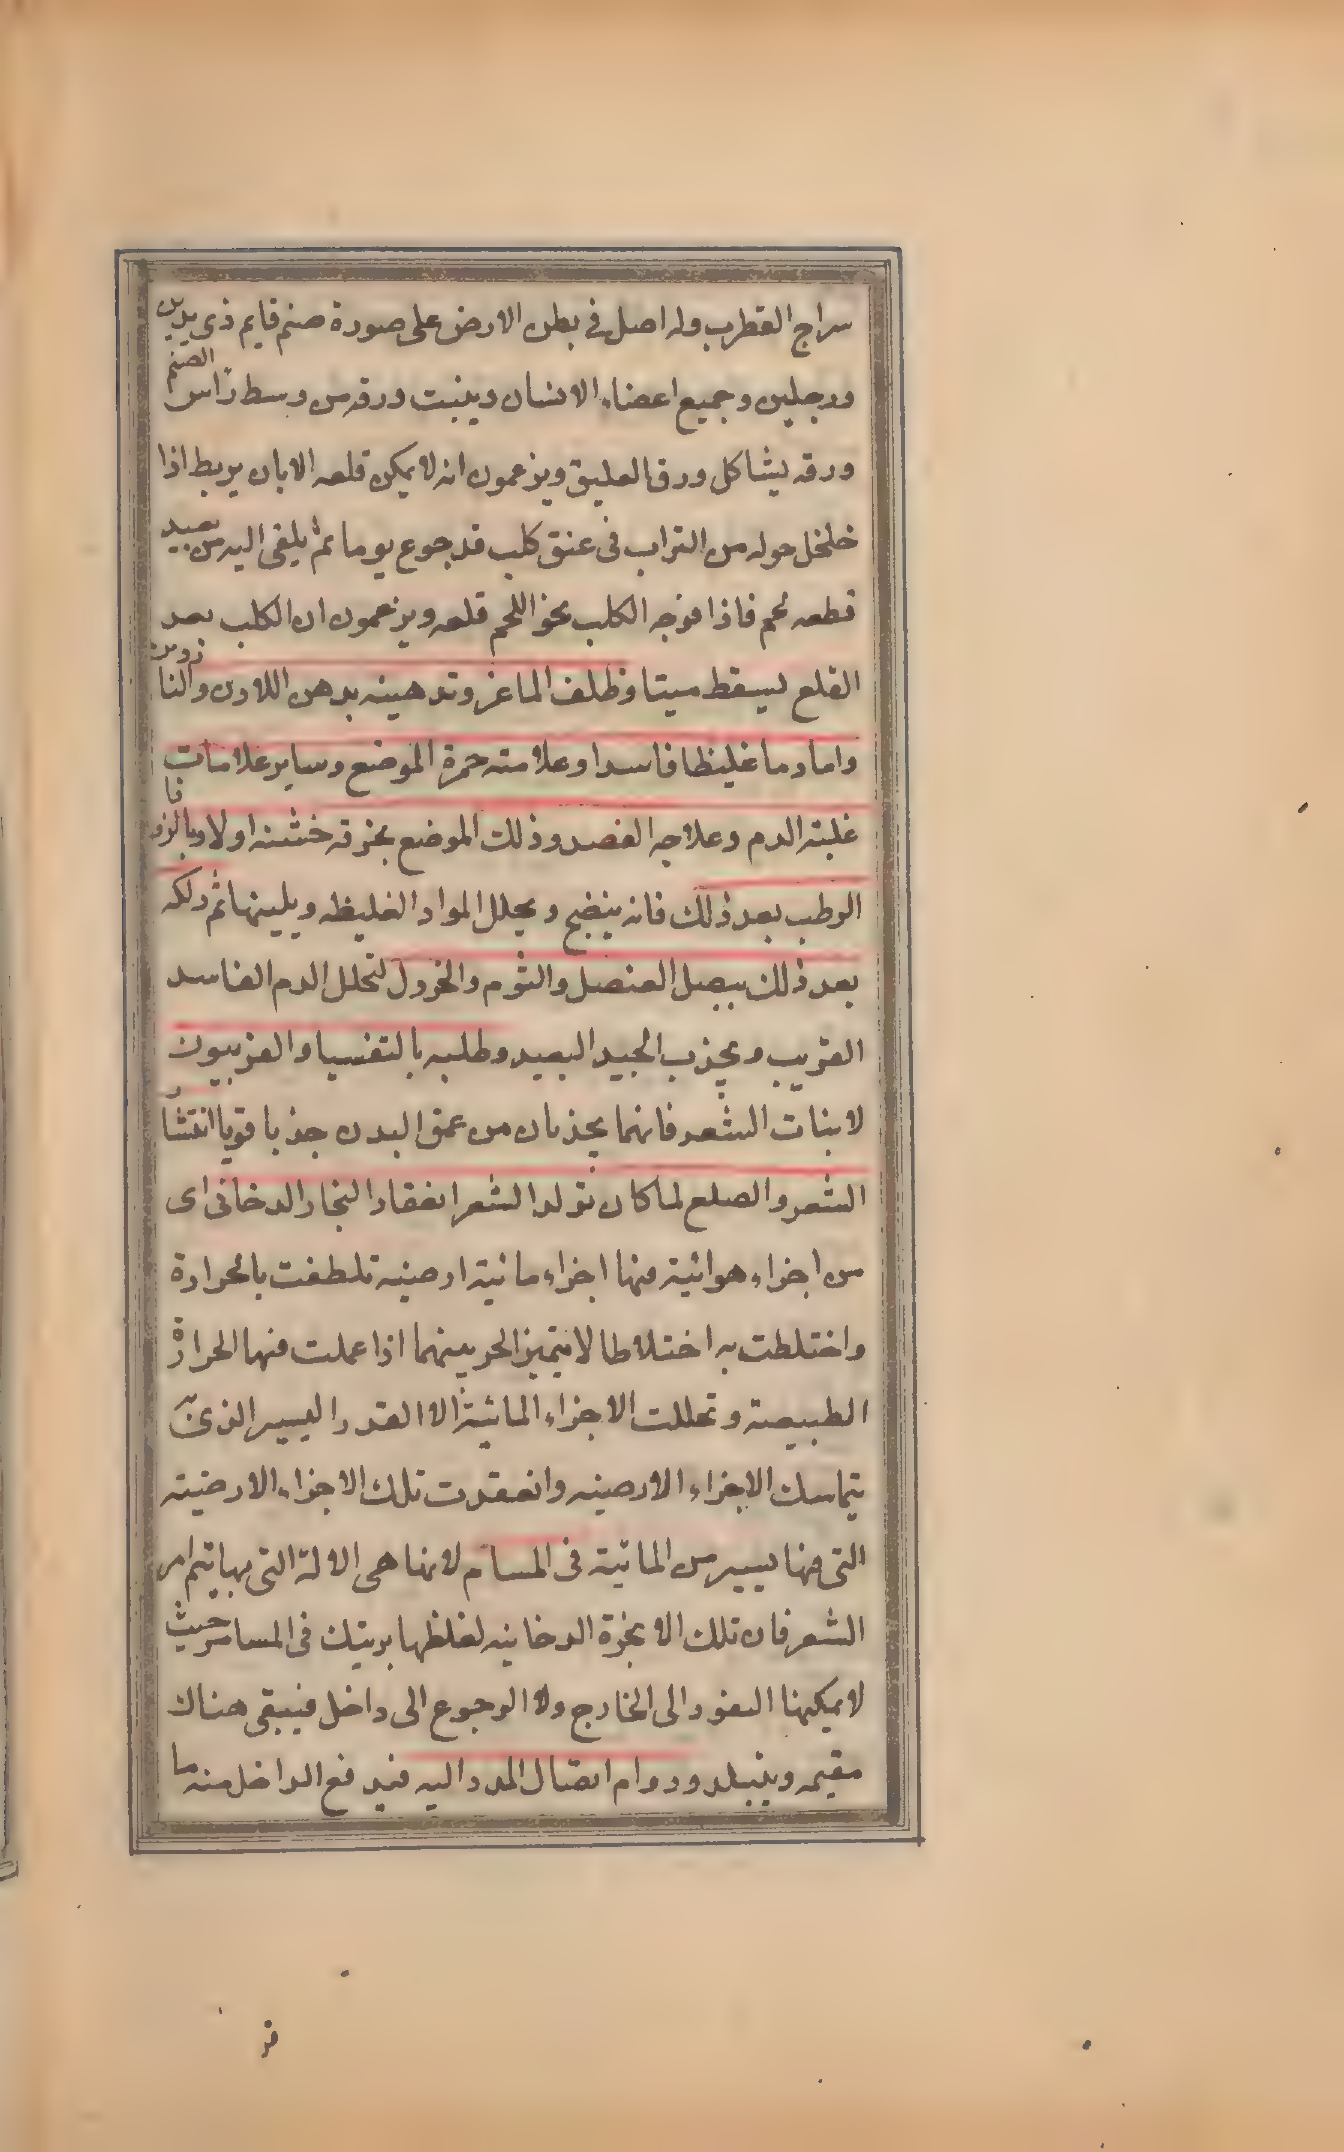 سراج القطرب وله اصل في بطن الارض على صورة صنم قايم ذى يدين
ورجلين وجميع اعضاء الانسان وينبت ورقه من وسط رأس الصنم
ورقه يشاكل ورق العليق ويزعمون انه لا يمكن قلعه الا بان يربط اذا
خلخل حوله من التراب فى عنق كلب قد جوع يوما ثم يلقى اليه من بعيد
قطعه لحم فاذا توجه الكلب نحو اللحم قلعه ويزعمون ان الكلب بعد
القلع ليسقط ميتا وظلف الماعز وتدهينه بدهن اللادن والناردين
واما دما غليظا فاسدا وعلامته حمرة الموضع وساير علامات
غلبته الدم وعلاجه الفصد وذلك الموضع بخرقه خشنه اولا وبالزوفا
الرطب بعد ذلك فانه ينضج ويحلل المواد الغليظه ويلينها ثم دلكه
بعد ذلك ببصل العنصل والثوم والخردل لتحلل الدم الفاسد
القريب ويجذب الجيد البعيد وطلبه بالتفسيا والفربيون
لابنات الشعر فانهما يجذبان من عمق البدن جذبا قويا انتثار
الشعر والصلع لما كان تولد الشعر انعقاد البخار الدخانى اى
من اجزاء هوائية فيها اجزاء مائية ارضيه تلطفت بالحرارة
واختلطت به اختلاطا لا يتميز الحر بينهما اذا عملت فيها الحرارة
الطبيعية وتحللت الاجزاء المائية الا القدر اليسير الذى به
يتماسك الاجزاء الارضيه وانعقدت تلك الاجزاء الارضيته
التى فيها يسير من المائية فى المسام لانها هى الالة التى بها يتم امر
الشعر فان تلك الابخرة الدخانيه لغلظها يرتبك فى المسام حيث
لا يمكنها النفود الى الخارج ولا الرجوع الى داخل فيبقى هناك
مقيمه ويتبلد ودوام اتصال المدد اليه فيدفع الداخل منه ما